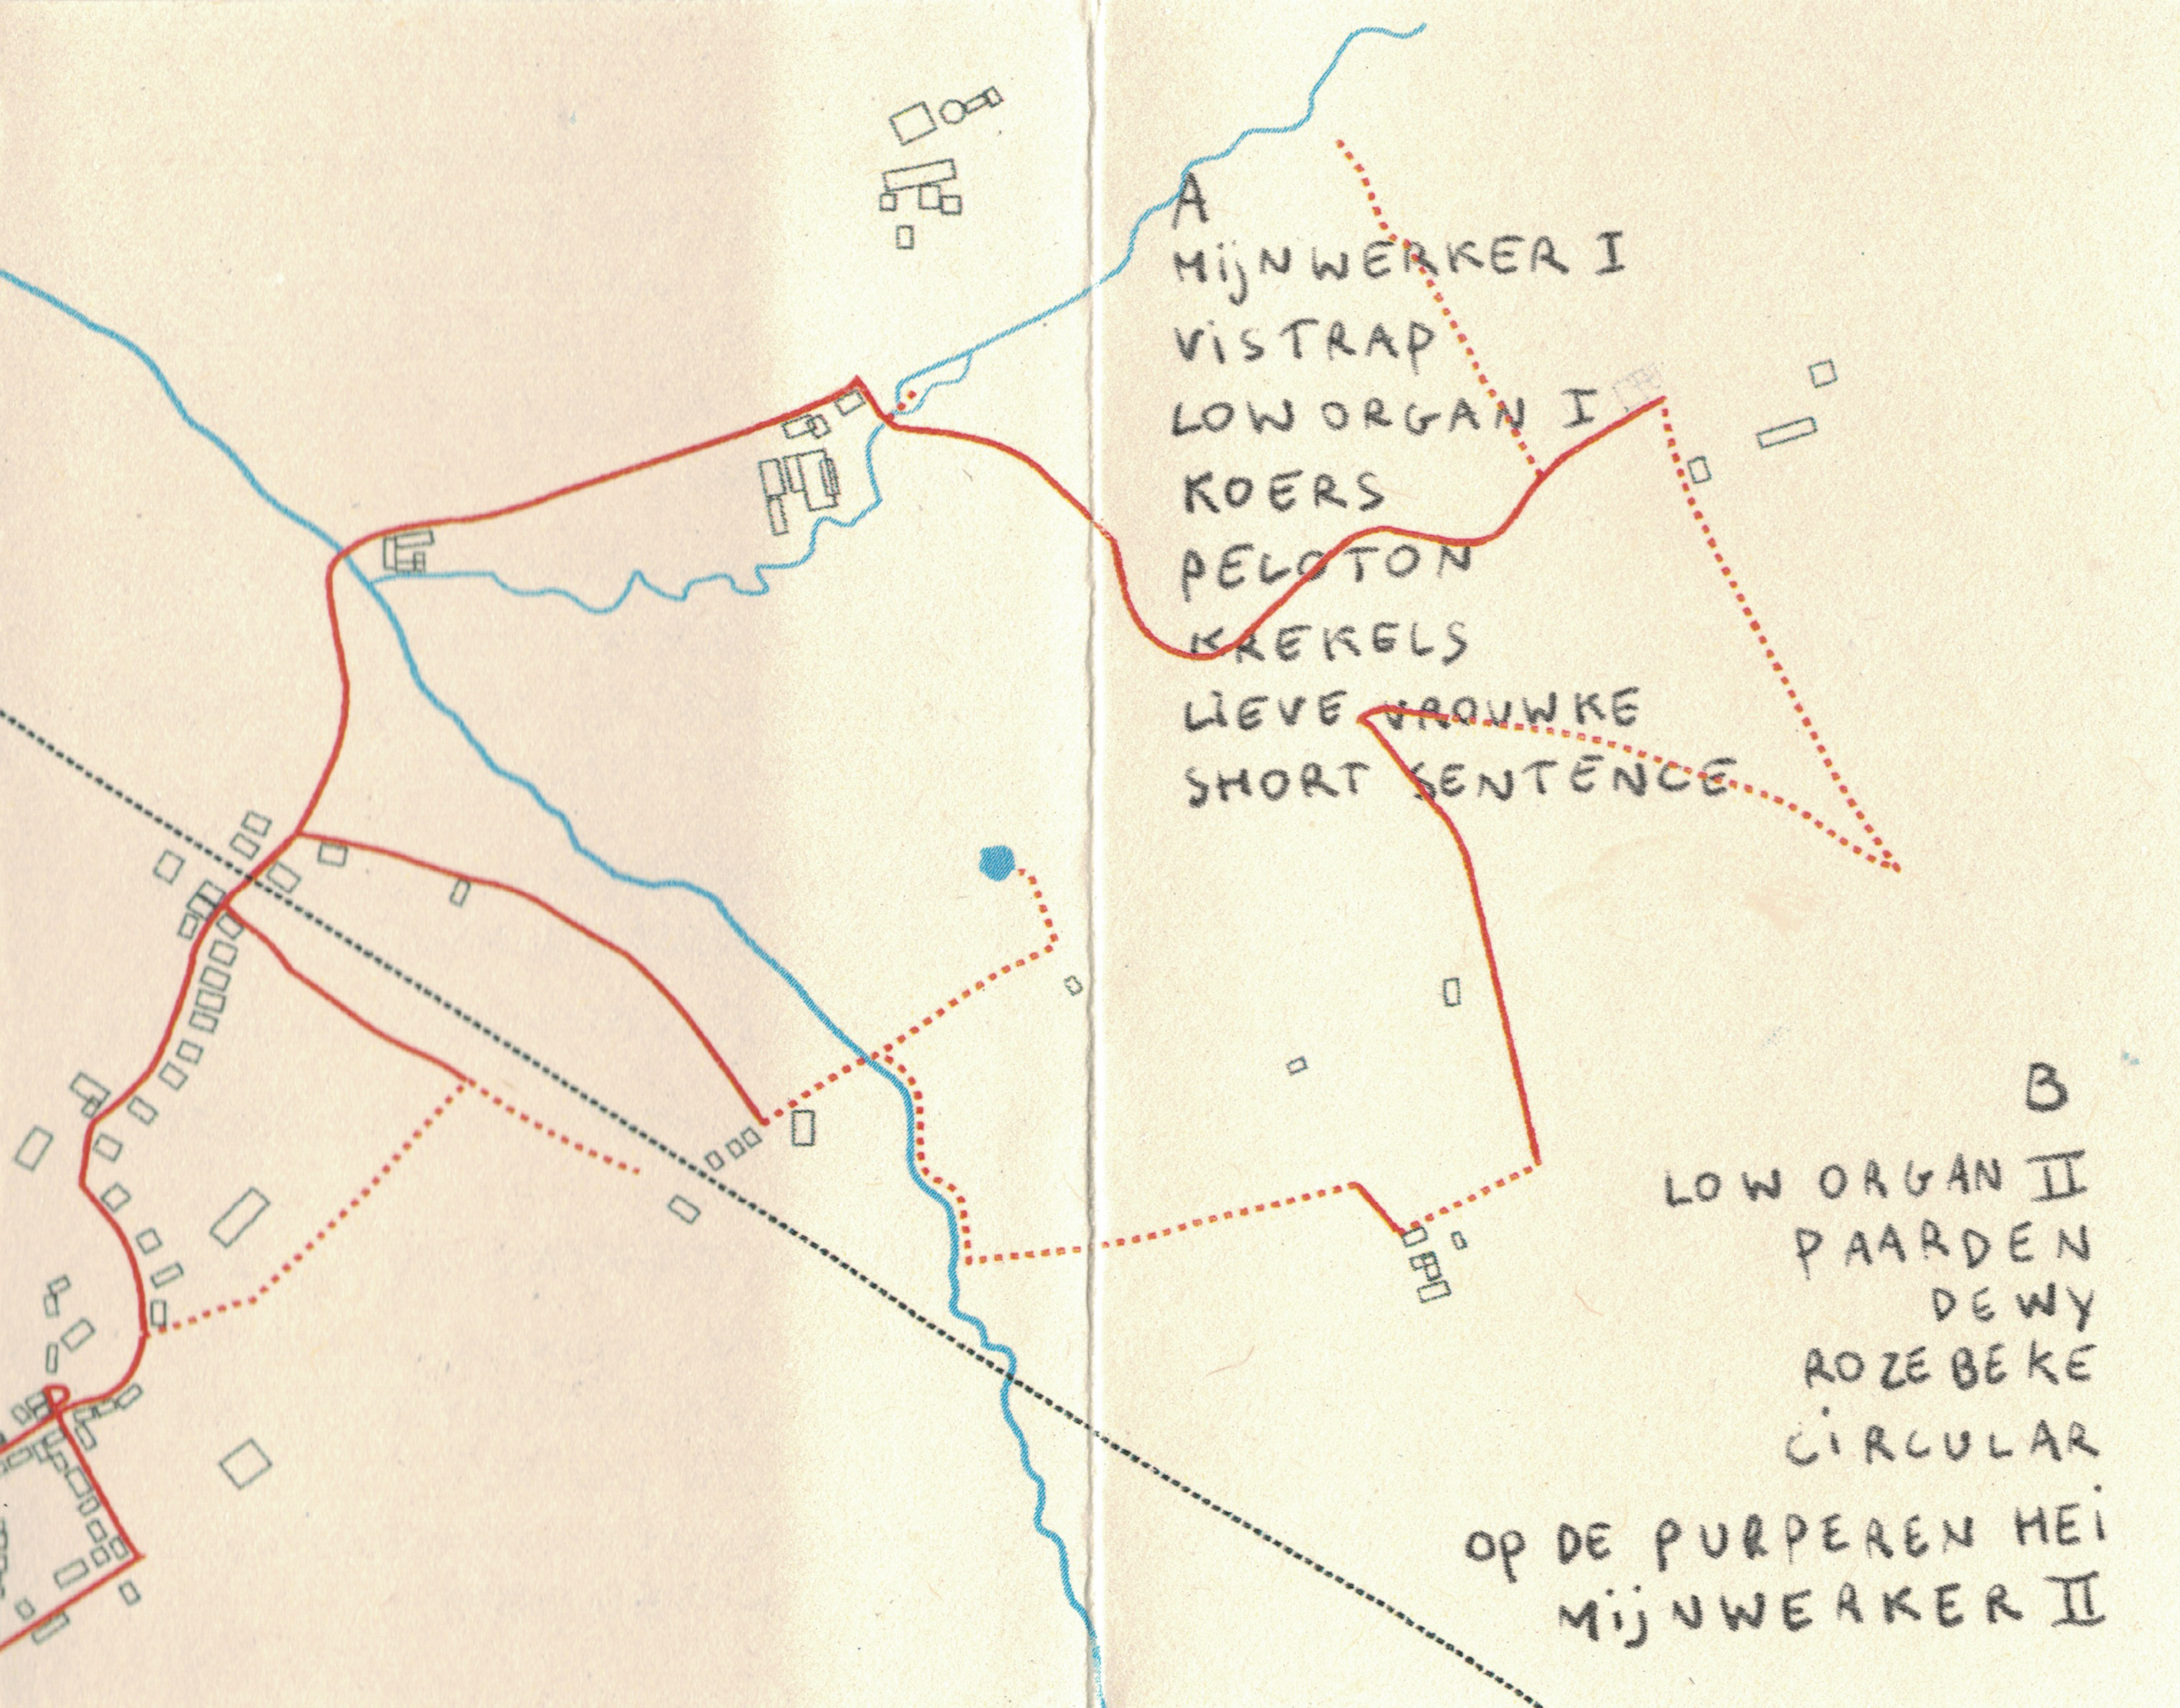 A
MijNWERKER I
ViSTRAP
LOW ORGAN I
KOERS
PELOTON
KREKELS
LiEVE VROUWKE
SHORT SENTENCE
B
LOW ORGAN II
PAARDEN
DEWY
ROZEBEKE
CiRCULAR
OP DE PURPEREN HEi
MijNWERKER II